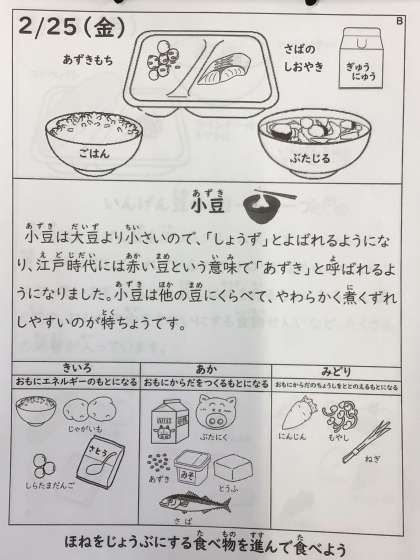 2/25（金）
B
あずきもち
さばの
しおやき
ぎゅう
にゅう
ごはん
ぶたじる
あずき
小豆
あずき だいず ちい
小豆は大豆より小さいので、「しょうず」とよばれるようにな
えどじだい あか まめ いみ よ
り、江戸時代には赤い豆という意味で「あずき」と呼ばれるよ
あずき ほか まめ に
うになりました。小豆は他の豆にくらべて、やわらかく煮くずれ
とく
しやすいのが特ちょうです。
きいろ
おもにエネルギーのもとになる
あか
おもにからだをつくるもとになる
みどり
おもにからだのちょうしをととのえるもとになる
じゃがいも
さとう
しらたまだんご
ぶたにく
あずき
みそ
とうふ
さば
にんじん
もやし
ねぎ
た もの すす た
ほねをじょうぶにする食べ物を進んで食べよう